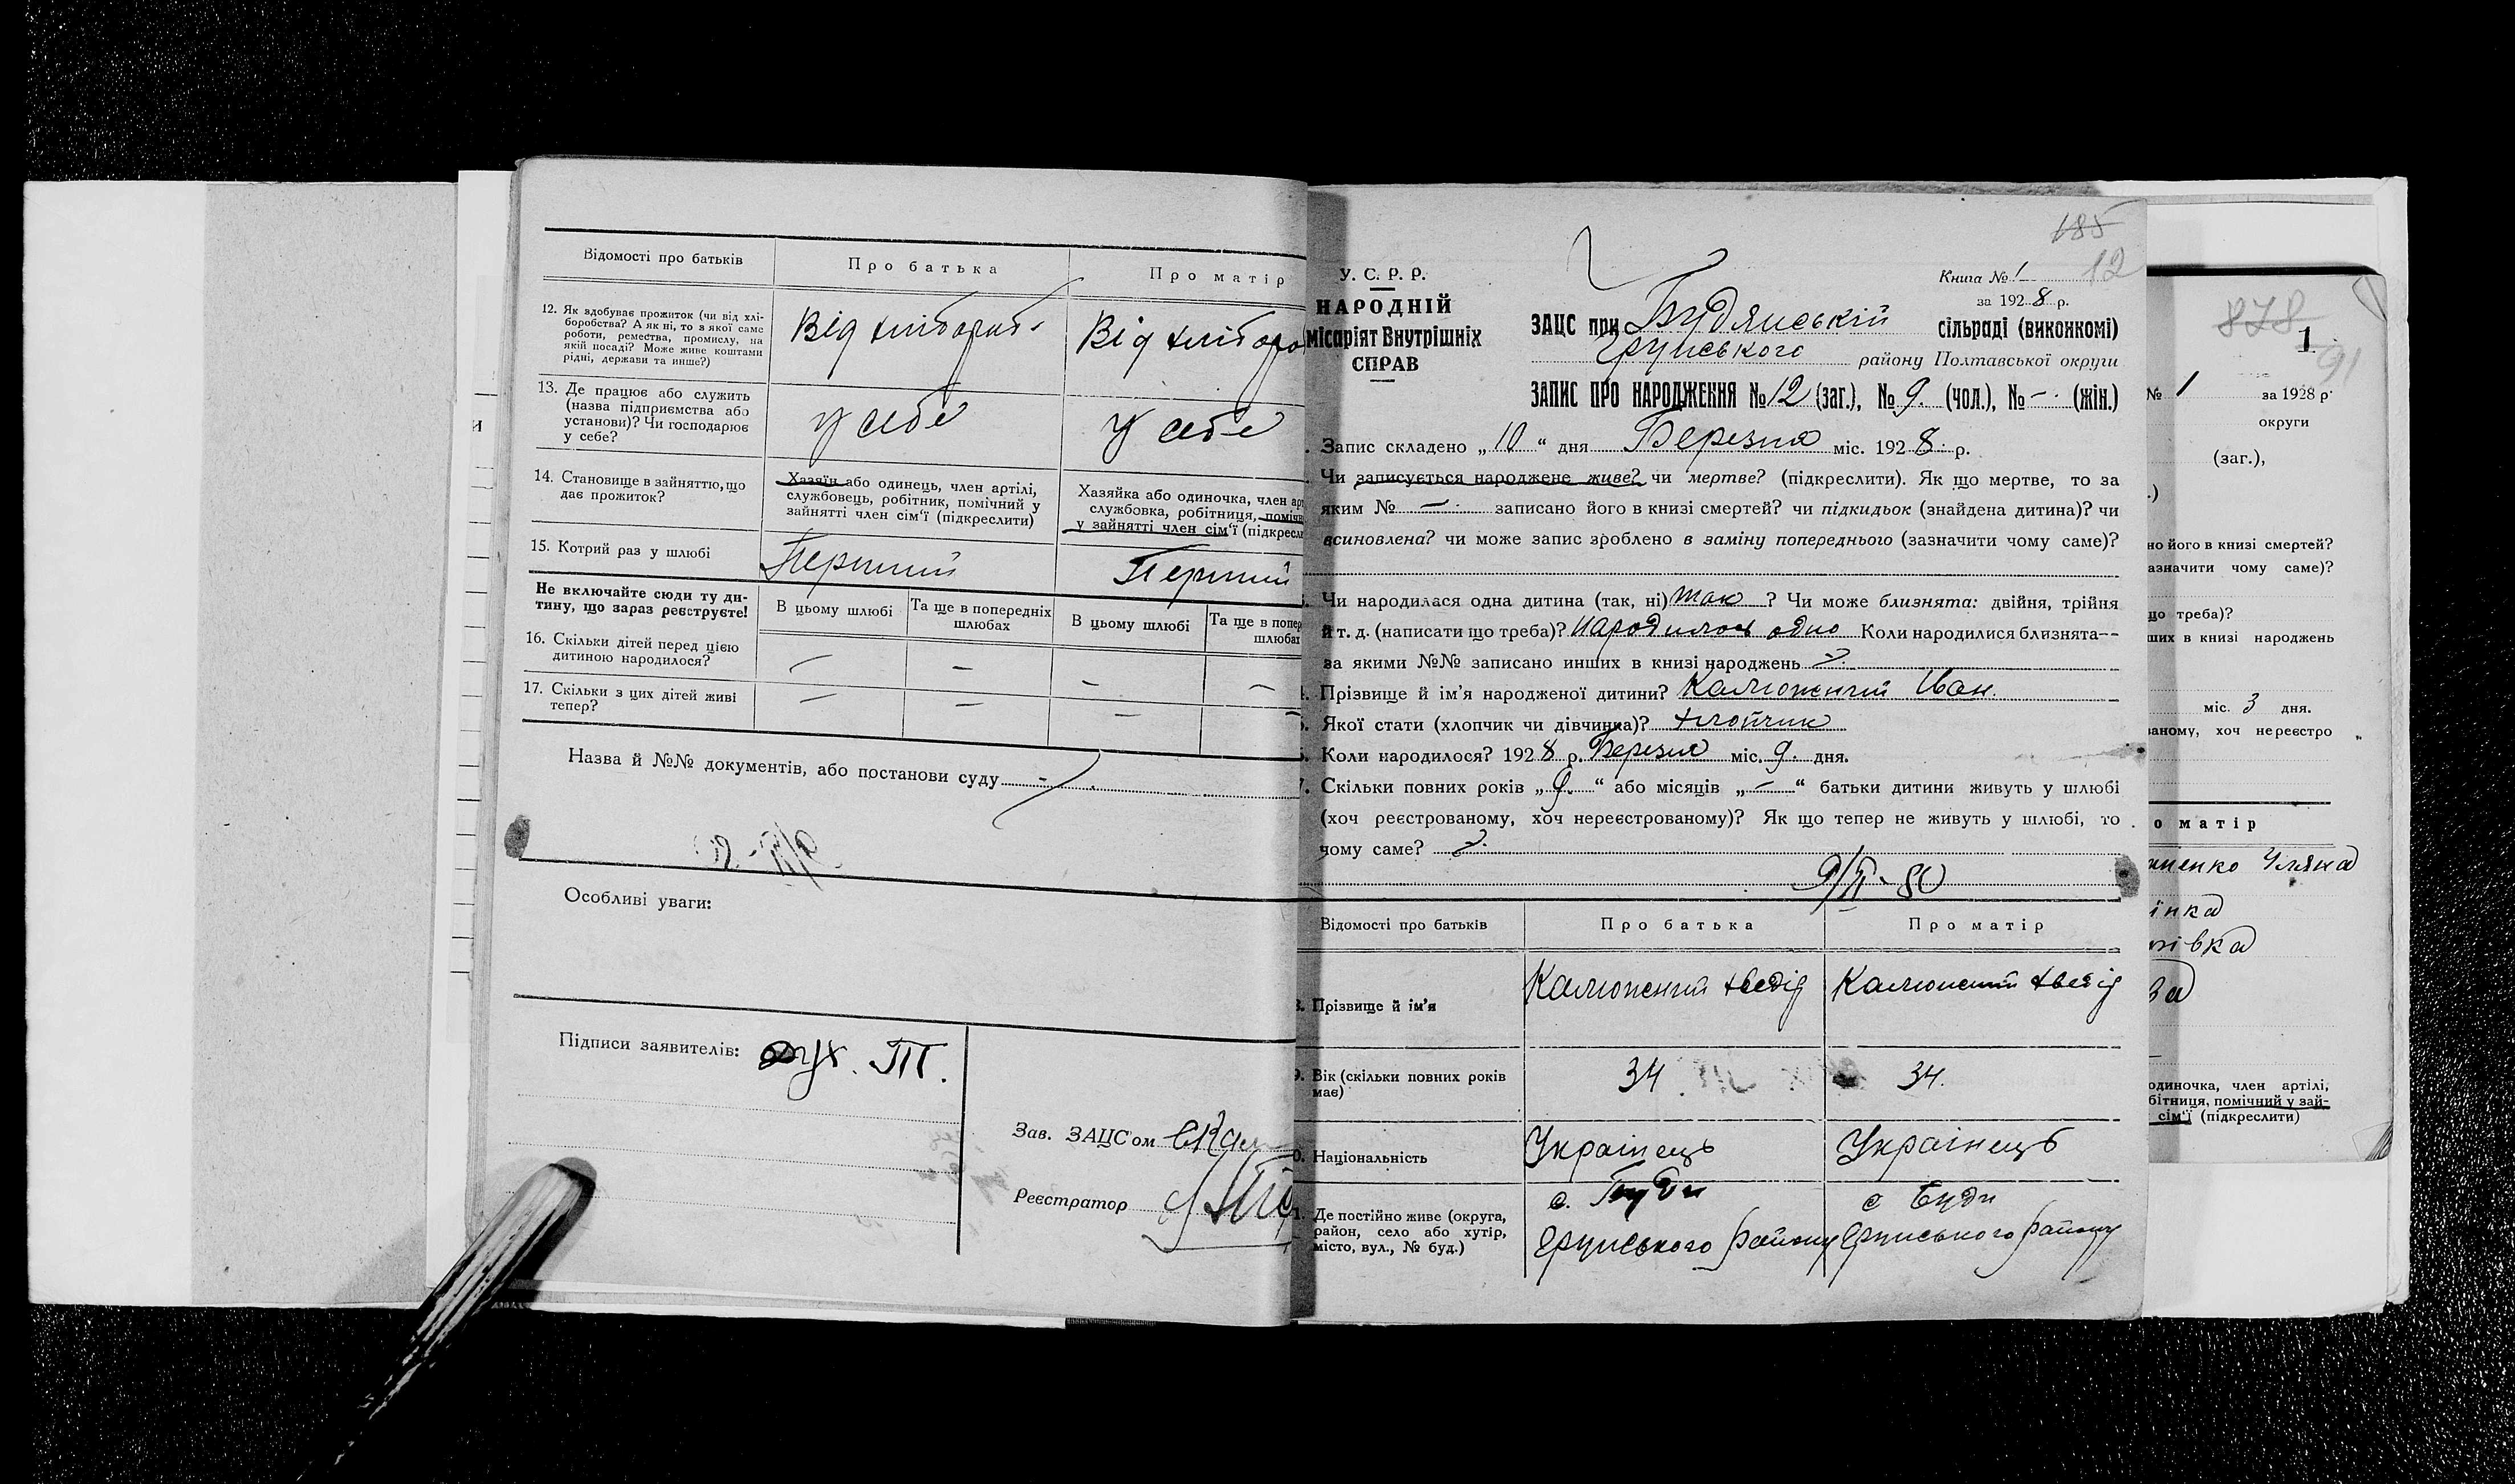 Відомості про батьків
Про батька
Про матір
12. Як здобуває прожиток (чи від хлі-
боробства? А як ні, то з якої саме
роботи, ремества, промислу, на
якій посаді? Може живе коштами
рідні, держави та инше?)
Від хлібороб-
Від хлібо
13. Де працює або служить
(назва підприємства або
установи)? Чи господарює
у себе?
у себе
у себе
14. Становище в зайняттю, що
дає прожиток?
Хазяїн або одинець, член артілі,
службовець, робітник, помічний у
зайнятті член сім'ї (підкреслити)
Хазяйка або одиночка, член арт
службовка, робітниця, поміч
у зайнятті член сім'ї (підкресл
15. Котрий раз у шлюбі
Перший
Перший
Не включайте сюди ту ди-
тину, що зараз реєструєте!
В цьому шлюбі
Та ще в попередніх
шлюбах
В цьому шлюбі
Та ще в попер
шлюбах
16. Скільки дітей перед цією
дитиною народилося?
— — — —
17. Скільки з цих дітей живі
тепер?
— — — —
Назва й №№ документів, або постанови суду
Особливі уваги:
Підписи заявителів:
Зав. ЗАЦС'ом
Реєстратор
185
12
У. С. Р. Р.
НАРОДНІЙ
місаріят Внутрішніх
СПРАВ
Книга № 1
за 1928 р.
ЗАЦС при Будянській сільраді (виконкомі)
району Полтавської округи
ЗАПИС ПРО НАРОДЖЕННЯ № 12 (заг.), № 9. (чол.), № — (жін.)
Запис складено „10“ дня Березня міс. 1928 р.
Чи записується народжене живе? чи мертве? (підкреслити). Як що мертве, то за
яким № — записано його в книзі смертей? чи підкидьок (знайдена дитина)? чи
всиновлена? чи може запис зроблено в заміну попереднього (зазначити чому саме)?
Чи народилася одна дитина (так, ні) так ? Чи може близнята: двійня, трійня
й т. д. (написати що треба)? народилось одно Коли народилися близнята—
за якими №№ записано инших в книзі народжень
Прізвище й ім'я народженої дитини? Калюжний Іван.
Якої стати (хлопчик чи дівчинка)? хлопчик
Коли народилося? 1928 р. Березня міс. 9. дня.
7. Скільки повних років „9.“ або місяців „—“ батьки дитини живуть у шлюбі
(хоч реєстрованому, хоч нереєстрованому)? Як що тепер не живуть у шлюбі, то
чому саме?
Відомості про батьків
Про батька
Про матір
Прізвище й ім'я
Калюжний
Калюжний
9. Вік (скільки повних років
має)
34
34.
Національність
Українець
Українець
Де постійно живе (округа,
район, село або хутір,
місто, вул., № буд.)
с. Буди
району
с Буди
району
878
1
91
№ 1 за 1928 р.
округи
(заг.),
но його в книзі смертей?
азначити чому саме)?
що треба)?
ших в книзі народжень
міс. 3 дня.
ваному, хоч нереєстро
о матір
Уляна
інка
одиночка, член артілі,
бітниця, помічний у зай-
сім'ї (підкреслити)